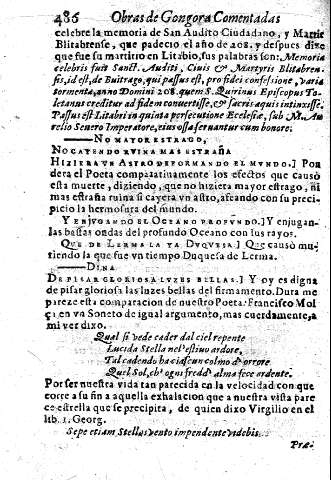 486 Obras de Gongora Comentadas
celebre la memoria de San Audito Ciudadano, y Martir
Blitabrense, que padecio el año de 208. y despues dize
que fue su martirio en Litabio, sus palabras son: Memoria
celebris fuit Sanct. Auditi, Ciuis & Martyris Blitabren-
sis, id est, de Buitrago, qui passus est, pro fidei confessione, varia
tormenta, anno Domini 208. quem S. Quirinus Episcopus To-
letanus creditur ad fidem conuertisse, & sacris aquis intinxisse.
Passus est Litabri in quinta persecutione Ecclesiæ, sub M. Au-
relio Seuero Imperatore, eius ossa seruantur cum honore.
NO MAYOR ESTRAGO,
NO CAYENDO RVINA MAS ESTRAÑA
HIZIERA VN ASTRO DEFORMANDO EL MVNDO.] Pon
dera el Poeta comparatiuamente los efectos que causò
esta muerte, diziendo, que no hiziera mayor estrago, ni
mas estraña ruina si cayera vn astro, afeando con su preci-
picio la hermosura del mundo.
Y ENJVGANDO EL OCEANO PROFVNDO.] Y enjugan-
las bastas ondas del profundo Oceano con sus rayos.
QVE DE LERMA LA YA DVQVESA.] Que causò mu-
riendo la que fue vn tiempo Duquesa de Lerma.
DINA
DE PISAR GLORIOSA LVZES BELLAS.] Y oy es digna
de pisar gloriosa las luzes bellas del firmamento. Dura me
pareze esta comparacion de nuestro Poeta: Francisco Mol
ça en va Soneto de igual argumento, mas cuerdamente, a
mi ver dixo.
Qual si vede cader dal ciel repente
Lucida Stella nel' estiuo ardore,
Tal cadendo ha ciascun colmo d'orrore
Quel Sol, ch' ogni fredd' alma fece ardente.
Por ser nuestra vida tan parecida en la velocidad con que
corre a su fin a aquella exhalacion que a nuestra vista pare
ce estrella que se precipita, de quien dixo Virgilio en el
lib. 1. Georg.
Sepe etiam Stellas vento impendente videbis.
Præ-